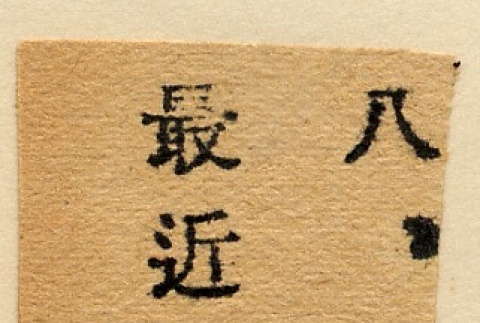 八
最近